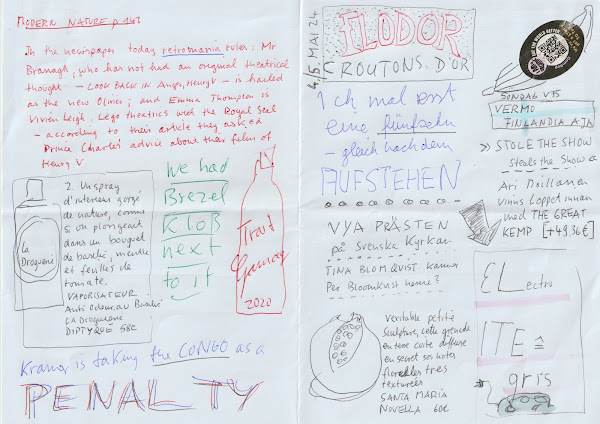 MODERN NATURE p 147
In the newspaper today retromania rules: Mr
Branagh, who has not had an original theatrical
thought - LOOK BACK IN Anger, Henry V - is hailed
as the new Olivier; and Emma Thompson is
Vivien Leigh. Lego theatrics with the Royal Seal
- according to their article they asked
Prince Charles' advice about their film of
Henry V.
La
Droguerie
2. Un spray
d'intérieur gorgé
de nature, comme
si on plongeait
dans un bouquet
de basilic, menthe
et feuilles de
tomate.
VAPORISATEUR
Anti Odeur au Basilic
LA Droguerie
DIPTYQUE 58€
we had
Brezel
KLOß
next
to it
2020
Kramer is taking the CONGO as a
PENALTY
4/5 MAI 24
ILODOR
CROUTONS D'OR
Ich mal erst
eine fünfzehn
- gleich nach dem
AUFSTEHEN
NYA PRÄSTEN
på Svenska Kyrkan.
TINA BLOMQVIST kanner
Per Blomkvist henne?
veritable petite
sculpture, cette grenade
en terre cuite diffuse
en secret ses notes
florelles très
texturées
SANTA MARIA
NOVELLA 60€
SÖNDAG V75
VERMO
FINLANDIA AJA
» STOLE THE SHOW
steals the Show
Ari Moilanen
vinus Loppet innan
med THE GREAT
KEMP [+49,36€]
ELectro
ITE =
gris